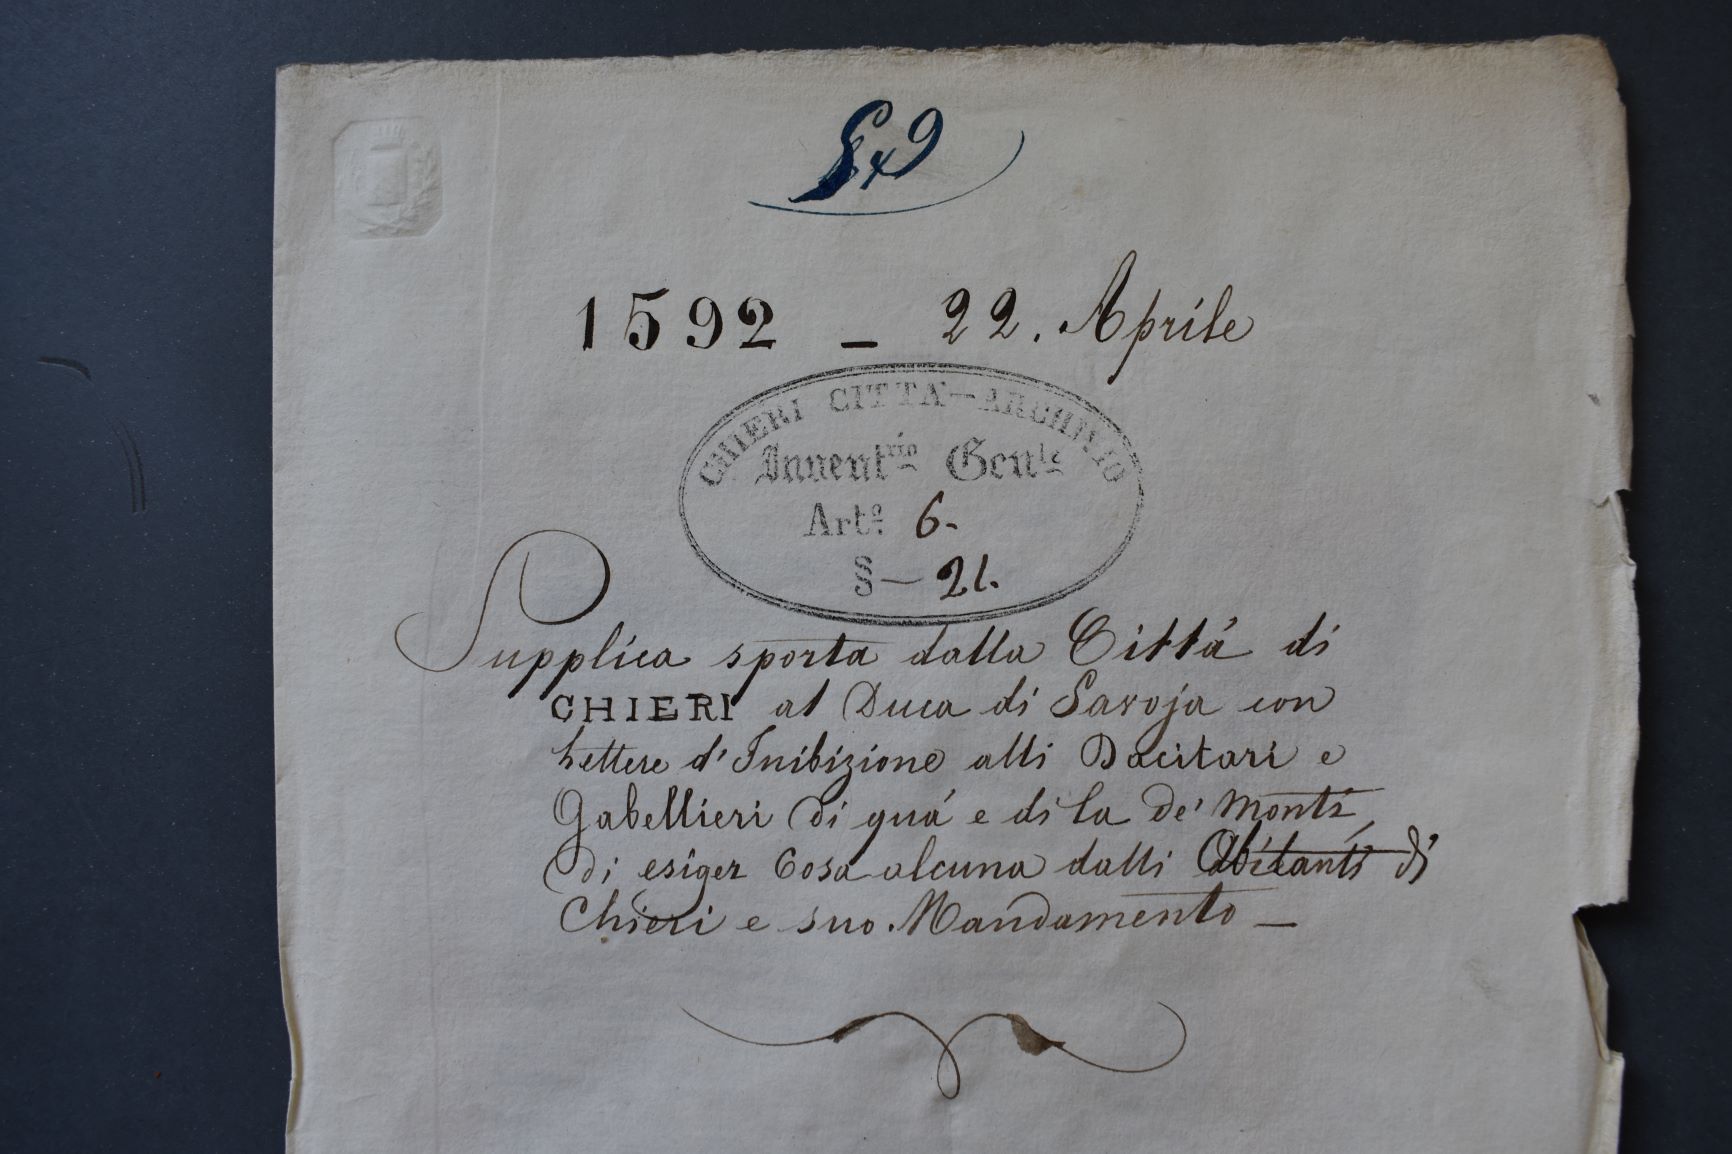 1592 _ 22. Aprile
CHIERI CITTÀ - ARCHIVIO
Invent.rio Gen.le
Art.o 6.
§ - 21.
Supplica sporta dalla Città di
CHIERI al Duca di Savoja con
Lettere d'Inibizione alli Dacitari e
Gabellieri di quá e di la de' Monti
di esiger Cosa alcuna dalli Abitanti di
Chieri e suo Mandamento _